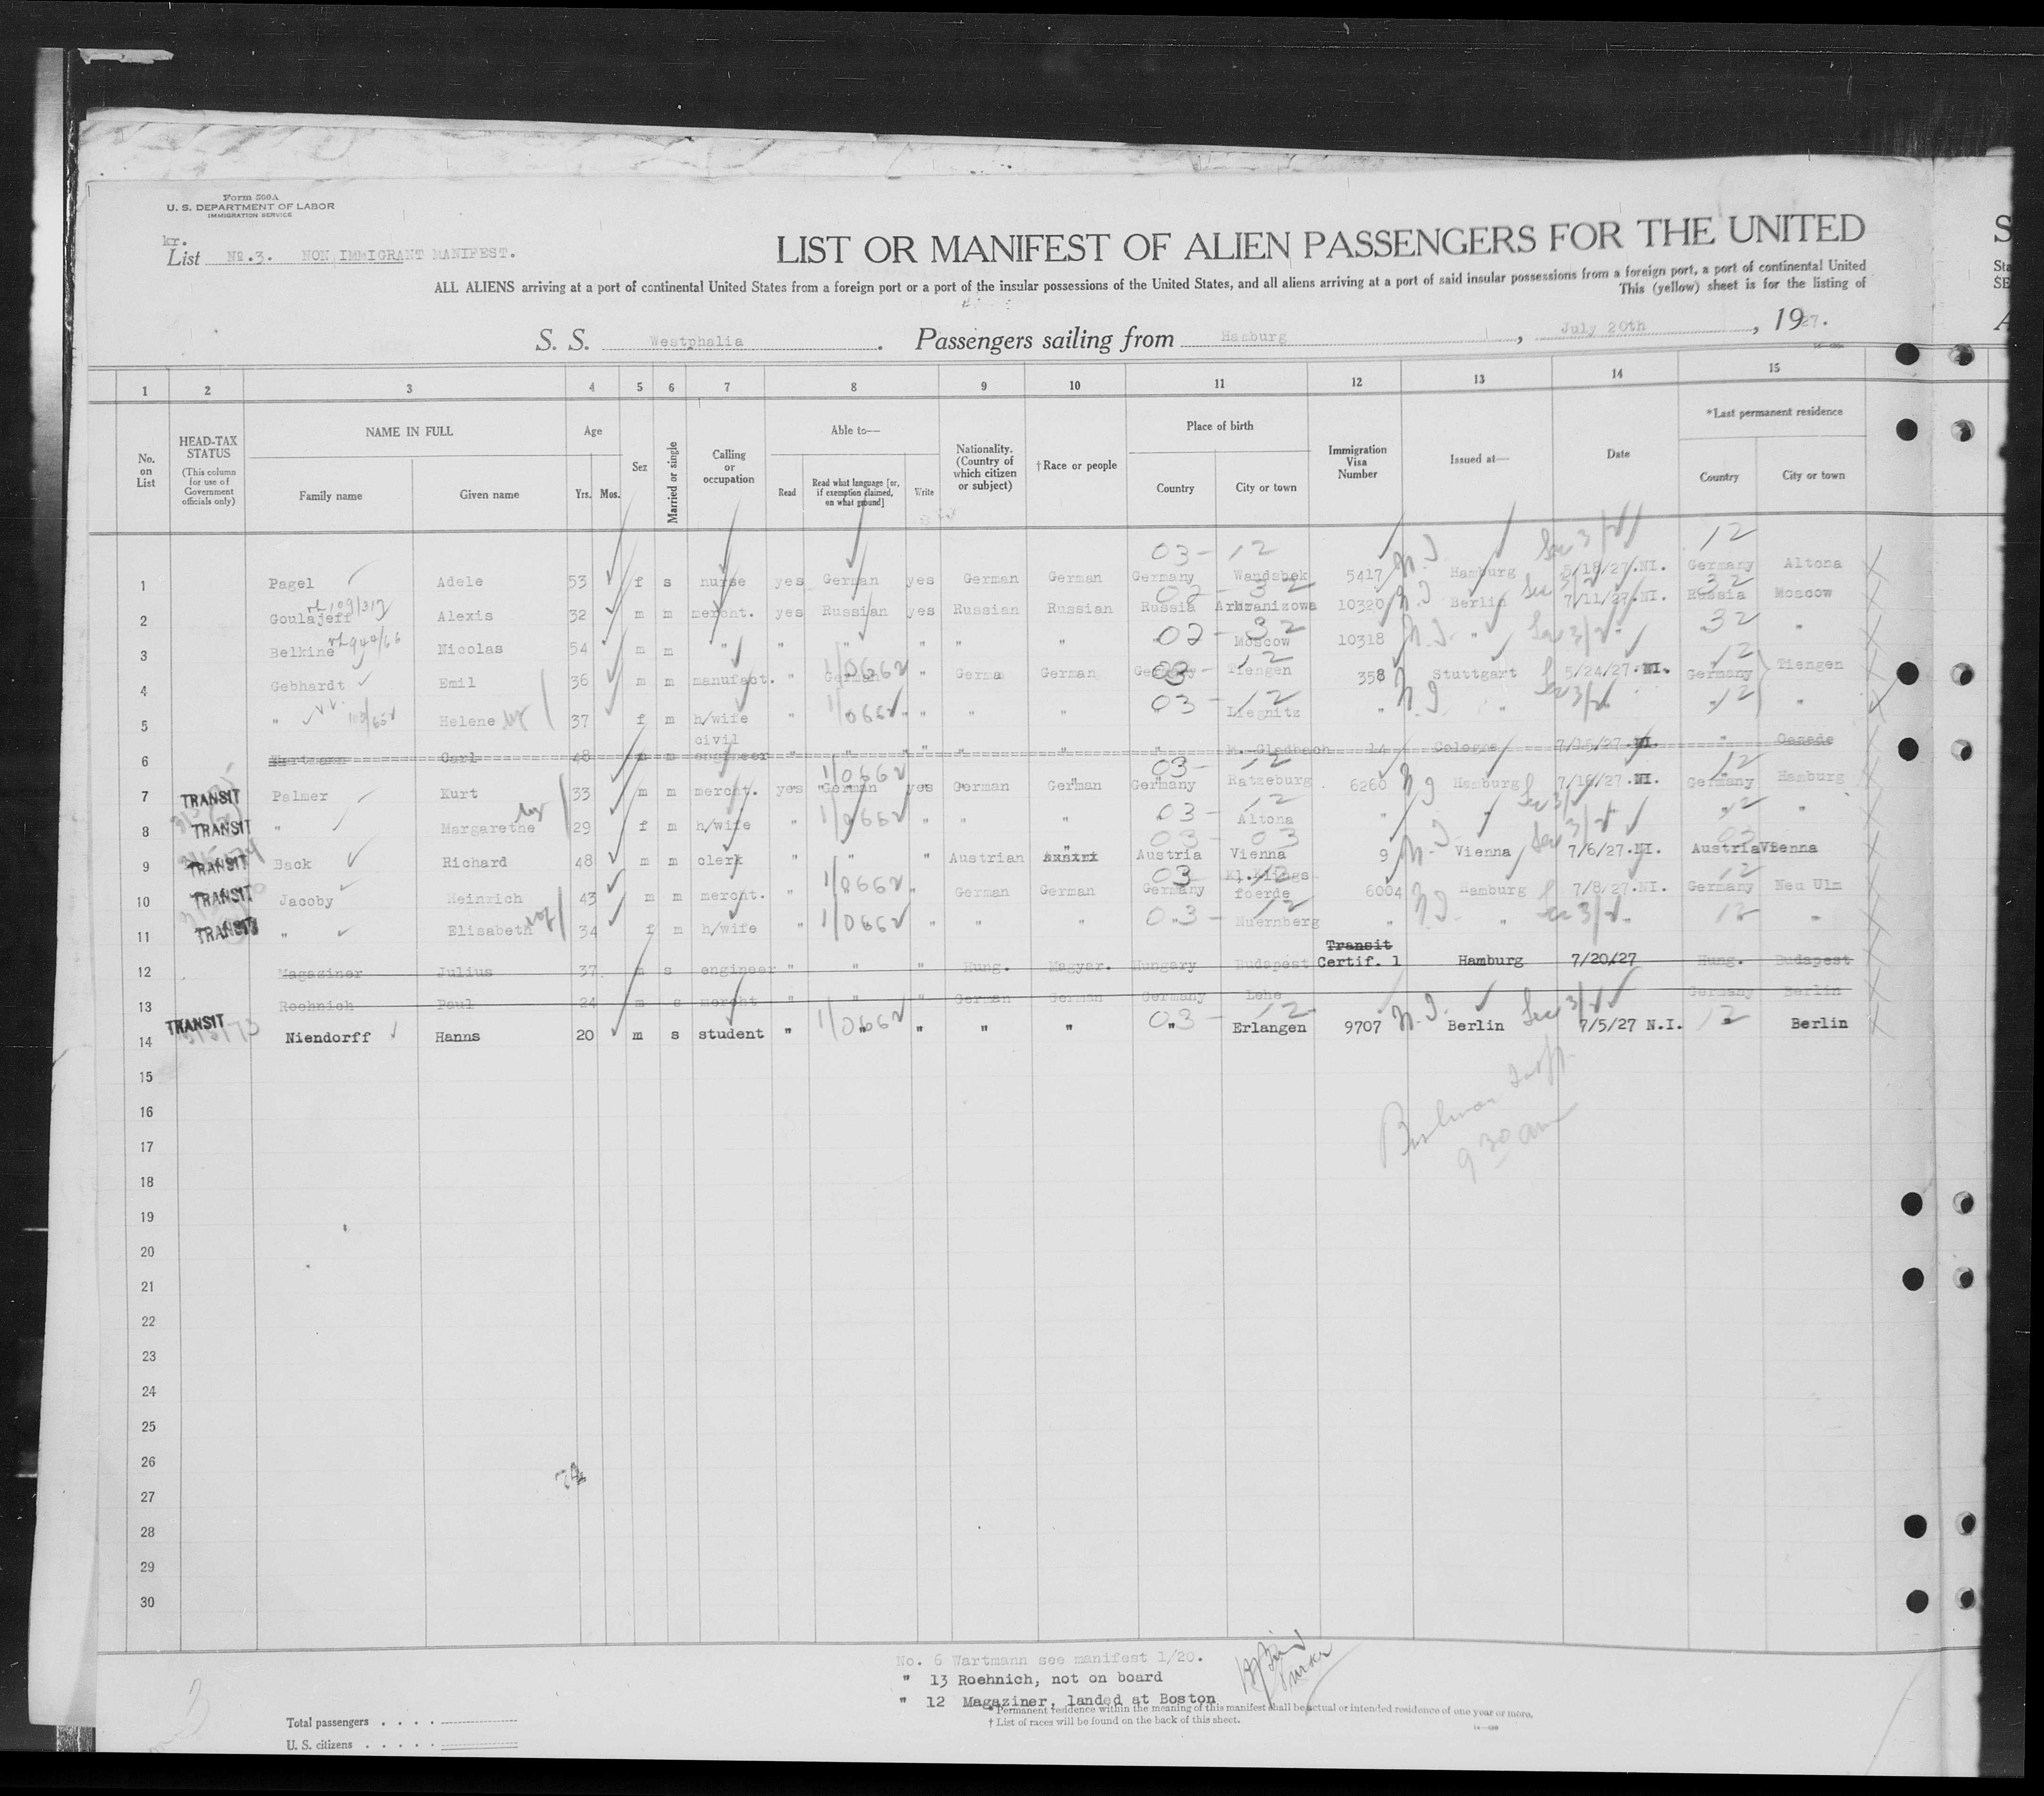 Form 500A
U. S. DEPARTMENT OF LABOR
IMMIGRATION SERVICE
kr.
List No.3. NON IMMIGRANT MANIFEST.
LIST OR MANIFEST OF ALIEN PASSENGERS FOR THE UNITED
ALL ALIENS arriving at a port of continental United States from a foreign port or a port of the insular possessions of the United States, and all aliens arriving at a port of said insular possessions from a foreign port, a port of continental United
This (yellow) sheet is for the listing of
S. S. Westphalia. Passengers sailing from Hamburg, July 20th, 1927.
1 2 3 4 5 6 7 8 9 10 11 12 13 14 15
No. on List
HEAD-TAX STATUS (This column for use of Government officials only)
NAME IN FULL Family name Given name
Age Yrs. Mos.
Sex
Married or single
Calling or occupation
Able to— Read Read what language [or, if exemption claimed, on what ground] Write
Nationality. (Country of which citizen or subject)
†Race or people
Place of birth Country City or town
Immigration Visa Number
Issued at—
Date
*Last permanent residence Country City or town
03 - 12 Sec 3/2 12
1 Pagel Adele 53 f s nurse yes German yes German German Germany Wandsbek 5417 N.I. Hamburg 5/18/27.NI. Germany Altona
02 - 32 Sec 3/2 32
2 Goulajeff 109/317 Alexis 32 m m mercht. yes Russian yes Russian Russian Russia 10320 N.I. Berlin 7/11/27.NI. Russia Moscow
3 Belkine 944/66 Nicolas 54 m m " " " " " " 02 - 32 Moscow 10318 N.I. " Sec 3/2 " 32 "
4 Gebhardt Emil 36 m m manufact. " German 1/0662 " Germa German Germany 03 - 12 Tiengen 358 N.I. Stuttgart 5/24/27.NI. Germany 12 Tiengen
5 " 103/652 Helene 37 f m h/wife " 1/0662 " " " 03 - 12 Liegnitz " N.I. " Sec 3/2 " 12 "
6 Wartmann Carl 48 m m civil engineer " " " " " " M.-Gladbach 14 Cologne 7/15/27.NI. "
7 TRANSIT Palmer Kurt 33 m m mercht. yes German 1/0662 yes German German Germany 03 - 12 Ratzeburg 6260 N.I. Hamburg 7/16/27.NI. Germany 12 Hamburg
8 TRANSIT " Margarethe 29 f m h/wife " 1/0662 " " " 03 - 12 Altona " " Sec 3/2 " 12 "
9 TRANSIT Back Richard 48 m m clerk " " " Austrian " Austria 03 - 03 Vienna 9 N.I. Vienna Sec 3/2 7/6/27.NI. Austria 03 Vienna
10 TRANSIT Jacoby Heinrich 43 m m mercht. " 1/0662 " German German Germany 03 - 12 Kl.Klings foerde 6004 N.I. Hamburg 7/8/27.NI. Germany 12 Neu Ulm
11 TRANSIT " Elisabeth 34 f m h/wife " 1/0662 " " " 03 - 12 Nuernberg " N.I. " Sec 3/2 " 12 "
12 Magaziner Julius 37 m s engineer " " " Hung. Magyar. Hungary Budapest Transit Certif. 1 Hamburg 7/20/27 Hung. Budapest
13 Roehnich Paul 24 m s mercht " " " German German Germany Lehe Germany Berlin
14 TRANSIT Niendorff Hanns 20 m s student " 1/0662 " " " 03 - 12 Erlangen 9707 N.I. Berlin Sec 3/2 7/5/27 N.I. 12 Berlin
15
16
17
9 30 am
18
19
20
21
22
23
24
25
26
27
28
29
30
No. 6 Wartmann see manifest 1/20.
" 13 Roehnich, not on board
" 12 Magaziner, landed at Boston
* Permanent residence within the meaning of this manifest shall be actual or intended residence of one year or more.
† List of races will be found on the back of this sheet.
Total passengers . . . .
U. S. citizens . . . . .